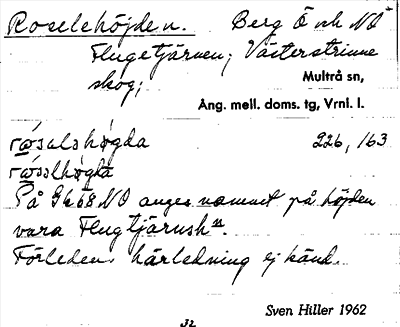 Roselehöjden. Berg Ö och NÖ
Flugetjärnen; Västerstrinne
skog;
Multrå sn,
Ång. mell. doms. tg, Vrnl. l.
rǻsalshøgda 226, 163
rǻsslhøgda
På Gk 68 NO anges namnet på höjden
vara Flugtjärnshn.
Förledens härledning ej känd.
Sven Hiller 1962
32